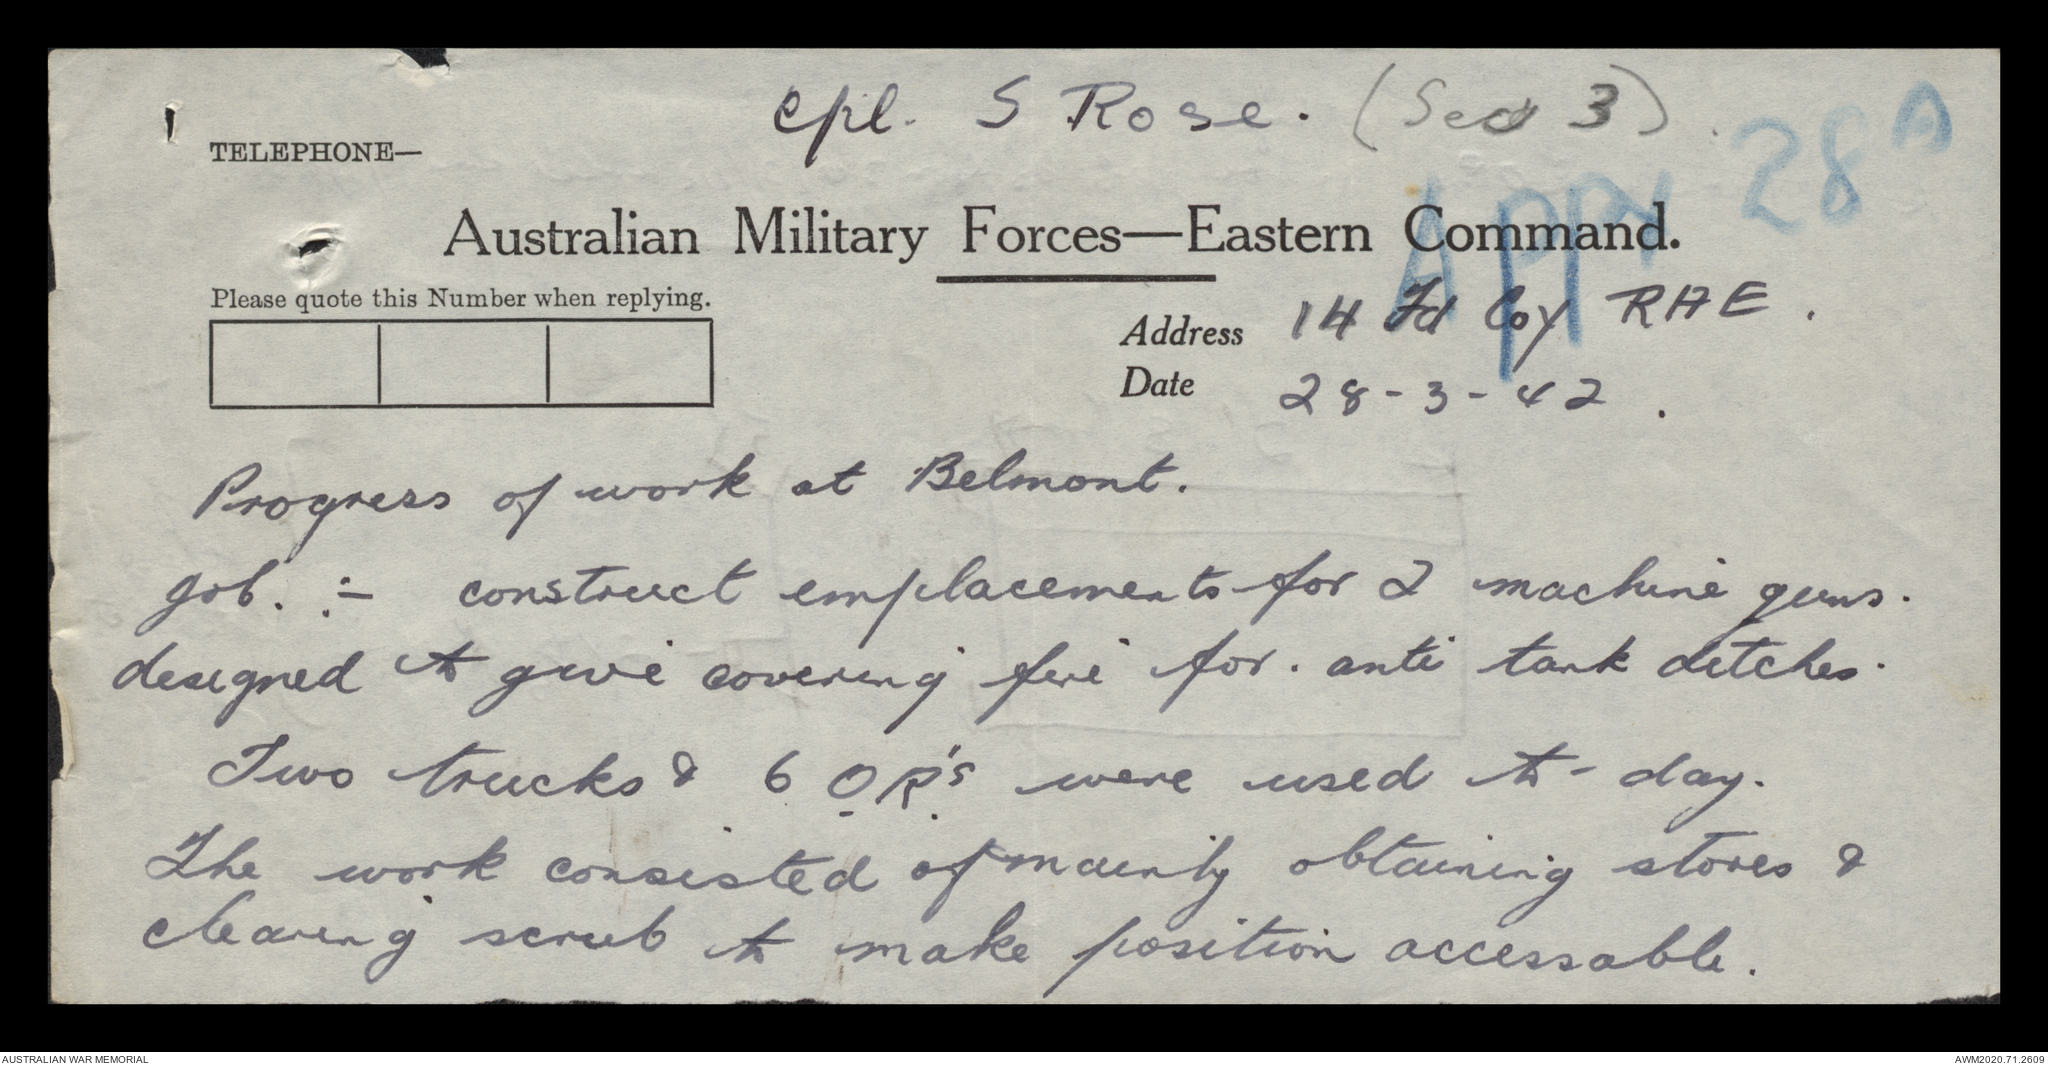 Cpl. S Rose. (Sec 3)
APPX 28A
TELEPHONE—
Australian Military Forces—Eastern Command.
Please quote this Number when replying.
Address 14 Fd Coy RAE.
Date 28-3-42.
Progress of work at Belmont.
Job. :- construct emplacements for 2 machine guns.
designed to give covering fire for. anti tank ditches.
Two trucks & 6 O.R.'s were used to-day.
The work consisted of mainly obtaining stores &
clearing scrub to make position accessable.
AUSTRALIAN WAR MEMORIAL
AWM2020.71.2609